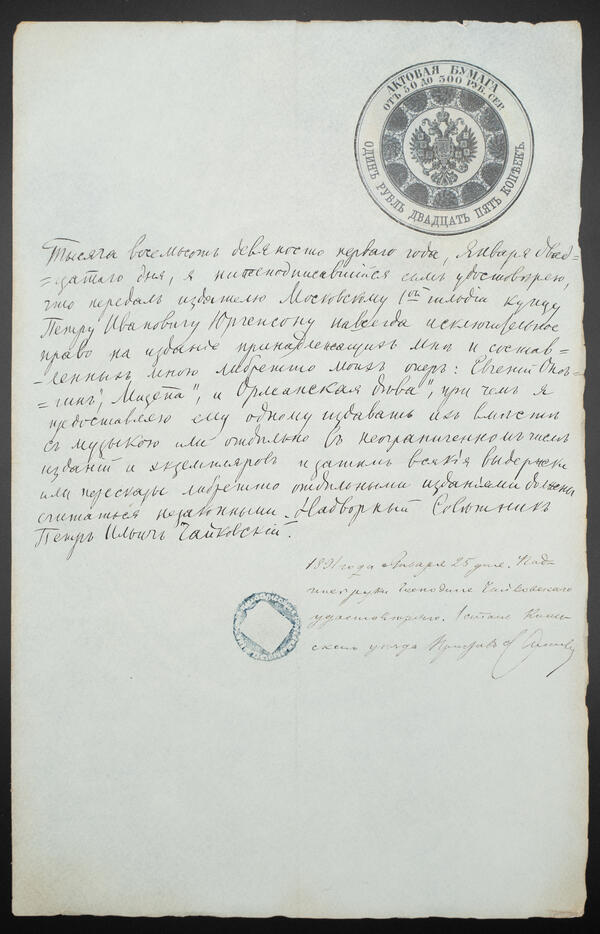 АКТОВАЯ БУМАГА
ОТЪ 50 ДО 300 РУБ. СЕР.
ОДИНЪ РУБЛЬ ДВАДЦАТЬ ПЯТЬ КОПѢЕКЪ
Тысяча восемьсотъ девяносто перваго года, Января двад-
=цатаго дня, я нижеподписавшійся симъ удостовѣряю,
что передалъ издателю Московскому 1ой гильдіи купцу
Петру Ивановичу Юргенсону навсегда исключительное
право на изданіе принадлежащихъ мнѣ и состав-
=ленныхъ мною либретто моихъ оперъ: "Евгеній Онѣ-
=гинъ", "Мазепа", и "Орлеанская дѣва", при чемъ я
предоставляю ему одному издавать ихъ вмѣстѣ
съ музыкою или отдѣльно въ неограниченномъ числѣ
изданій и экземпляровъ и затѣмъ всякія выдержки
или пересказы либретто отдѣльными изданіями должны
считаться незаконными. Надворный Совѣтникъ
Петръ Ильичъ Чайковскій.
1891 года Января 25 дня. Под-
пись руки Господина Чайковскаго
удостовѣряю.
уѣзда